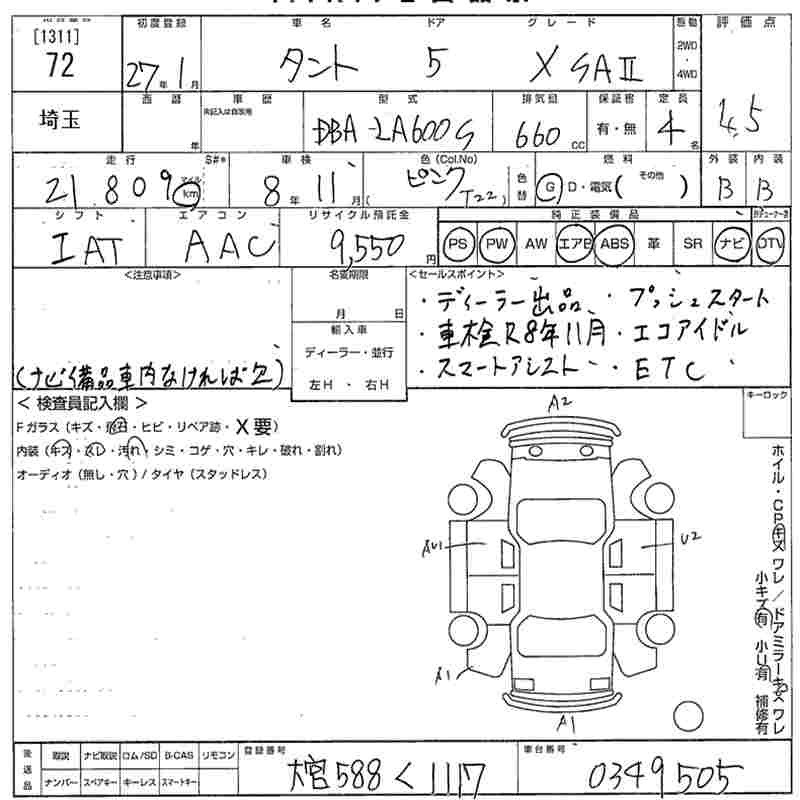 [1311]
72
初度登録
27年1月
車名
タント
ドア
5
グレード
X SAⅡ
駆動
2WD
・
4WD
評価点
4.5
埼玉
西暦
年
車歴
未記入は自家用
型式
DBA-LA600S
排気量
660cc
保証書
有・無
定員
4名
走行
21809
マイル
km
S#*
車検
8年11月
色(Col.No)
ピンク
(T22)
色替
燃料
G D・電気( その他 )
外装
B
内装
B
シフト
IAT
エアコン
AAC
リサイクル預託金
9,550円
純正装備品
PS PW AW エアB ABS 革 SR ナビ DTV
<注意事項>
(ナビ備品車内なければ欠)
名変期限
月 日
輸入車
ディーラー・並行
左H ・ 右H
<セールスポイント>
・ディーラー出品 ・プッシュスタート
・車検R8年11月 ・エコアイドル
・スマートアシスト ・ETC
<検査員記入欄>
Fガラス(キズ・飛石・ヒビ・リペア跡・X要)
内装(キズ・スレ・汚れ・シミ・コゲ・穴・キレ・破れ・割れ)
オーディオ(無し・穴)/タイヤ(スタッドレス)
キーロック
A2
AU1
U2
A1
A1
ホイル・CPキズ ワレ/ドアミラーキズ ワレ
小キズ有 小U有 補修有
後送品
取説 ナビ取説 ロム/SD B-CAS リモコン
ナンバー スペアキー キーレス スマートキー
登録番号
大宮588く1117
車台番号
0349505